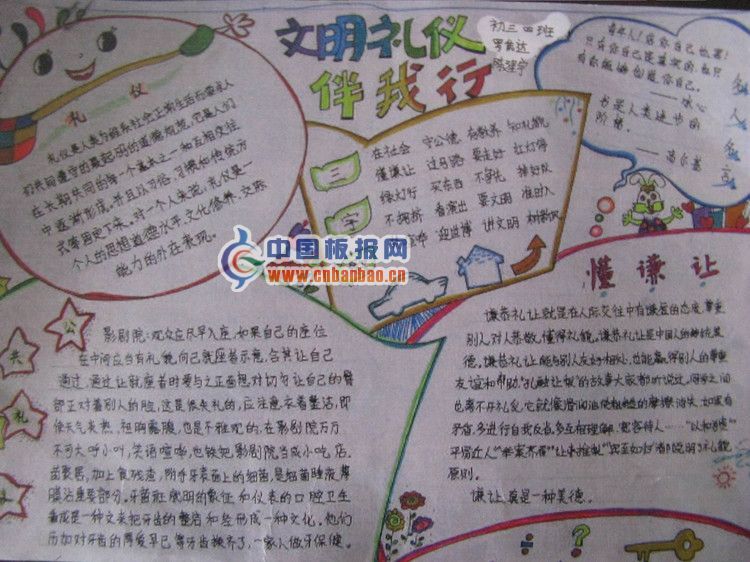 文明礼仪
伴我行
初三四班
礼 仪
礼仪是人类为维系社会正常生活而要求人
们共同遵守的最起码的道德规范，它是人们
在长期共同的
生活和相互交往
中逐渐形成，并且以习俗、习惯和传统方
式等固定下来。对一个人来说，礼仪是一
个人的思想道德水平、文化修养、交际
能力的外在表现。
三
字
在社会 守公德 有教养 知礼貌
懂谦让 过马路 要走好 红灯停
绿灯行 买东西 不争先 排好队
不拥挤 看演出 要文明 准时入
迎进博 讲文明 树新风
青年人！信你自己也罢！
只有你自己是真实的，也只
有你能够创造你自己。
——冰心
也是人类进步的
阶梯。
——高尔基
名
人
名
言
中国板报网
www.cnbanbao.cn
懂谦让
谦恭礼让就是在人际交往中有谦爱的态度，尊重
别人，对人恭敬，懂得礼貌。谦恭礼让是中国人的传统美
德，谦恭礼让能与别人友好相处，也能赢得别人的尊重
友谊和帮助。"孔融让梨"的故事大家都听说过，同学之间
也离不开礼仪，
矛盾，多进行自我反省，多互相理解、宽容待人……
原则。
谦让，真是一种美德。
公
共
礼
影剧院：观众应尽早入座，如果自己的座位
在中间应当有礼貌，向已就座者示意，会其让自己
通过，通过让就座者时要与之正面想对，切勿让自己的臀
部正对着别人的脸，这是很失礼的，应注意衣着整洁，即
使天气炎热，袒胸露腹，也是不雅观的，在影剧院万万
不可大呼小叫，笑语喧哗，也铁把影剧院当成小吃店。
齿裂唇，加上食残渣，附于牙表面上的细菌，是细菌唾液
膜沾重要部分，牙菌斑
文明的象征和仪表的口腔卫生
看成是一种文
把牙齿的整洁
形成一种文化。他们
历如对牙齿的厚爱早已
一家人做牙保健。